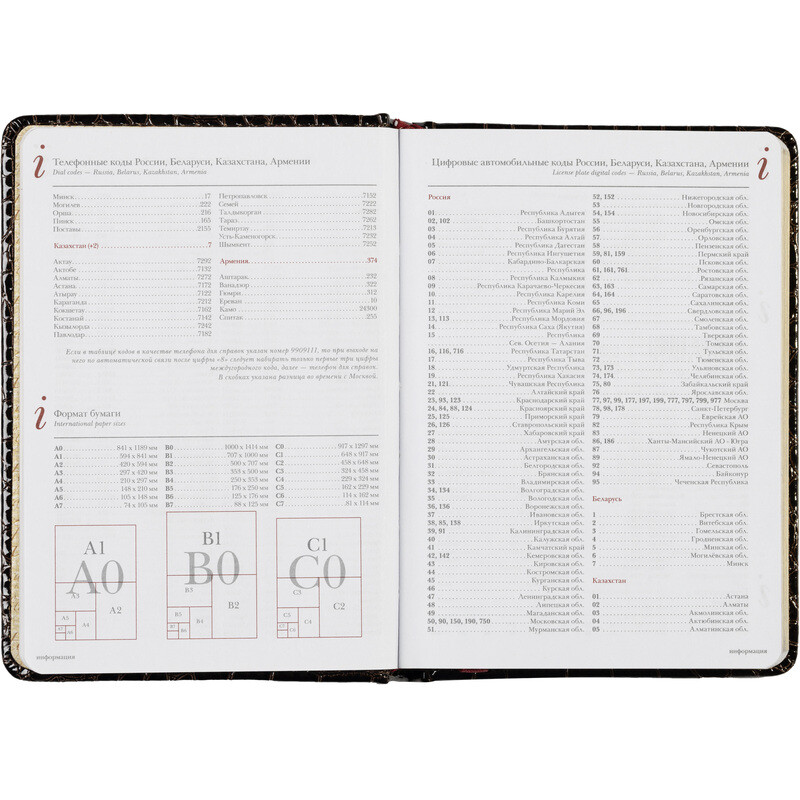 Телефонные коды России, Беларуси, Казахстана, Армении
Dial codes — Russia, Belarus, Kazakhstan, Armenia
Минск 17
Могилев 222
Орша 216
Пинск 165
Поставы 2155
Казахстан (+2) 7
Актау 7292
Актобе 7132
Алматы 7272
Астана 7172
Атырау 7122
Караганда 7212
Кокшетау 7162
Костанай 7142
Кызылорда 7242
Павлодар 7182
Петропавловск 7152
Семей 7222
Талдыкорган 7282
Тараз 7262
Темиртау 7213
Усть-Каменогорск 7232
Шымкент 7252
Армения 374
Аштарак 232
Ванадзор 322
Гюмри 312
Ереван 10
Камо 24300
Спитак 255
Если в таблице кодов в качестве телефона для справок указан номер 9909111, то при выходе на
него по автоматической связи после цифры «8» следует набирать только первые три цифры
междугородного кода, далее — телефон для справок.
В скобках указана разница во времени с Москвой.
Формат бумаги
International paper sizes
A0 841 x 1189 мм
A1 594 x 841 мм
A2 420 x 594 мм
A3 297 x 420 мм
A4 210 x 297 мм
A5 148 x 210 мм
A6 105 x 148 мм
A7 74 x 105 мм
B0 1000 x 1414 мм
B1 707 x 1000 мм
B2 500 x 707 мм
B3 353 x 500 мм
B4 250 x 353 мм
B5 176 x 250 мм
B6 125 x 176 мм
B7 88 x 125 мм
C0 917 x 1297 мм
C1 648 x 917 мм
C2 458 x 648 мм
C3 324 x 458 мм
C4 229 x 324 мм
C5 162 x 229 мм
C6 114 x 162 мм
C7 81 x 114 мм
A1
A0
A3
A2
A5
A4
A7
A6
B1
B0
B3
B2
B5
B4
B7
B6
C1
C0
C3
C2
C5
C4
информация
Цифровые автомобильные коды России, Беларуси, Казахстана, Армении
License plate digital codes — Russia, Belarus, Kazakhstan, Armenia
Россия
01 Республика Адыгея
02, 102 Башкортостан
03 Республика Бурятия
04 Республика Алтай
05 Республика Дагестан
06 Республика Ингушетия
07 Кабардино-Балкарская
Республика
08 Республика Калмыкия
09 Республика Карачаево-Черкесия
10 Республика Карелия
11 Республика Коми
12 Республика Марий Эл
13, 113 Республика Мордовия
14 Республика Саха (Якутия)
15 Республика
Сев. Осетия — Алания
16, 116, 716 Республика Татарстан
17 Республика Тыва
18 Удмуртская Республика
19 Республика Хакасия
21, 121 Чувашская Республика
22 Алтайский край
23, 93, 123 Краснодарский край
24, 84, 88, 124 Красноярский край
25, 125 Приморский край
26, 126 Ставропольский край
27 Хабаровский край
28 Амурская обл.
29 Архангельская обл.
30 Астраханская обл.
31 Белгородская обл.
32 Брянская обл.
33 Владимирская обл.
34, 134 Волгоградская обл.
35 Вологодская обл.
36, 136 Воронежская обл.
37 Ивановская обл.
38, 85, 138 Иркутская обл.
39, 91 Калининградская обл.
40 Калужская обл.
41 Камчатский край
42, 142 Кемеровская обл.
43 Кировская обл.
44 Костромская обл.
45 Курганская обл.
46 Курская обл.
47 Ленинградская обл.
48 Липецкая обл.
49 Магаданская обл.
50, 90, 150, 190, 750 Московская обл.
51 Мурманская обл.
52, 152 Нижегородская обл.
53 Новгородская обл.
54, 154 Новосибирская обл.
55 Омская обл.
56 Оренбургская обл.
57 Орловская обл.
58 Пензенская обл.
59, 81, 159 Пермский край
60 Псковская обл.
61, 161, 761 Ростовская обл.
62 Рязанская обл.
63, 163 Самарская обл.
64, 164 Саратовская обл.
65 Сахалинская обл.
66, 96, 196 Свердловская обл.
67 Смоленская обл.
68 Тамбовская обл.
69 Тверская обл.
70 Томская обл.
71 Тульская обл.
72 Тюменская обл.
73, 173 Ульяновская обл.
74, 174 Челябинская обл.
75, 80 Забайкальский край
76 Ярославская обл.
77, 97, 99, 177, 197, 199, 177, 797, 799, 977 Москва
78, 98, 178 Санкт-Петербург
79 Еврейская АО
82 Республика Крым
83 Ненецкий АО
86, 186 Ханты-Мансийский АО - Югра
87 Чукотский АО
89 Ямало-Ненецкий АО
92 Севастополь
94 Байконур
95 Чеченская Республика
Беларусь
1 Брестская обл.
2 Витебская обл.
3 Гомельская обл.
4 Гродненская обл.
5 Минская обл.
6 Могилёвская обл.
7 Минск
Казахстан
01 Астана
02 Алматы
03 Акмолинская обл.
04 Актюбинская обл.
05 Алматинская обл.
информация